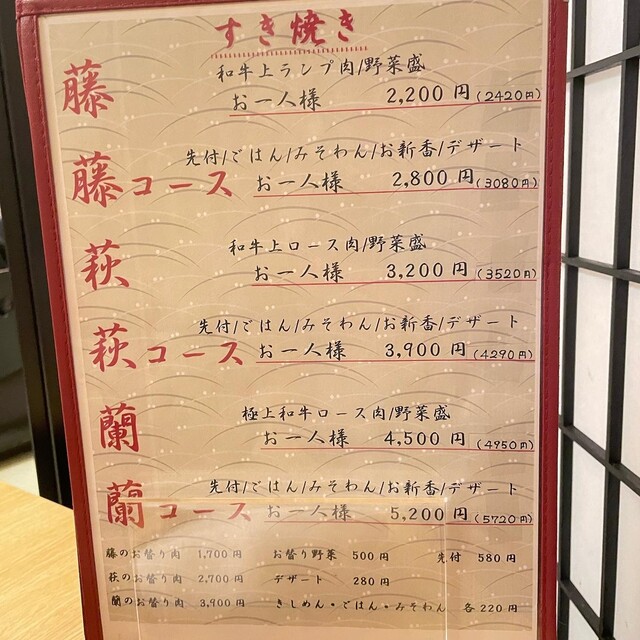 すき焼き
藤 和牛上ランプ肉/野菜盛
お一人様 2,200円(2420円)
先付/ごはん/みそわん/お新香/デザート
藤コース お一人様 2,800円(3080円)
萩 和牛上ロース肉/野菜盛
お一人様 3,200円(3520円)
先付/ごはん/みそわん/お新香/デザート
萩コース お一人様 3,900円(4290円)
蘭 極上和牛ロース肉/野菜盛
お一人様 4,500円(4950円)
先付/ごはん/みそわん/お新香/デザート
蘭コース お一人様 5,200円(5720円)
藤のお替り肉 1,700円 お替り野菜 500円 先付 580円
萩のお替り肉 2,700円 デザート 280円
蘭のお替り肉 3,900円 きしめん・ごはん・みそわん 各220円